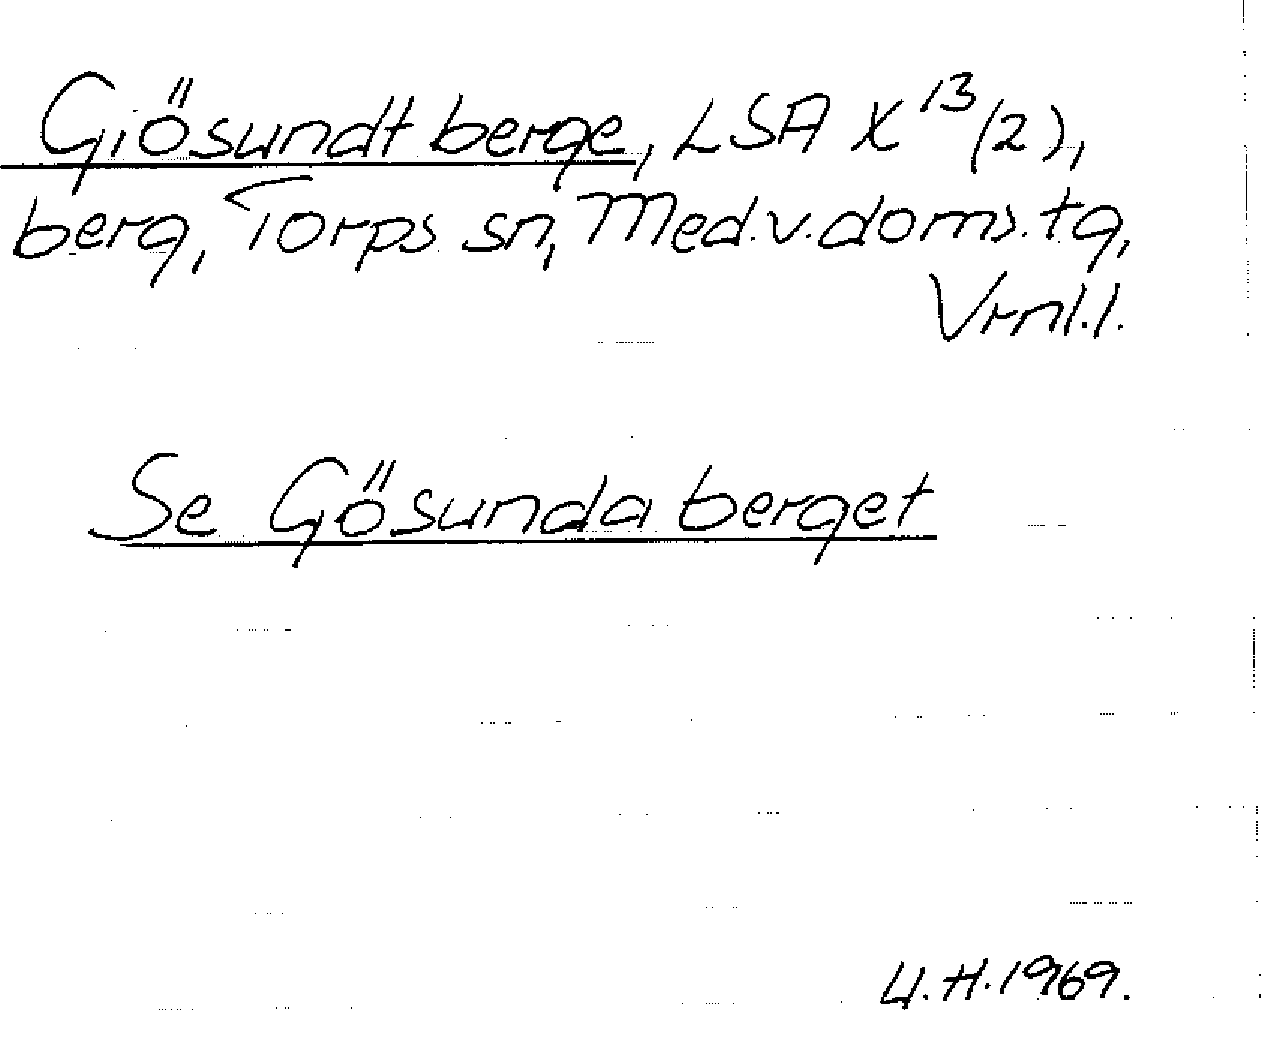 Giösundt berge, LSA X¹³(2),
berg, Torps sn, Med.v.doms.tg,
Vrnl.l.
Se Gösunda berget
U.H.1969.